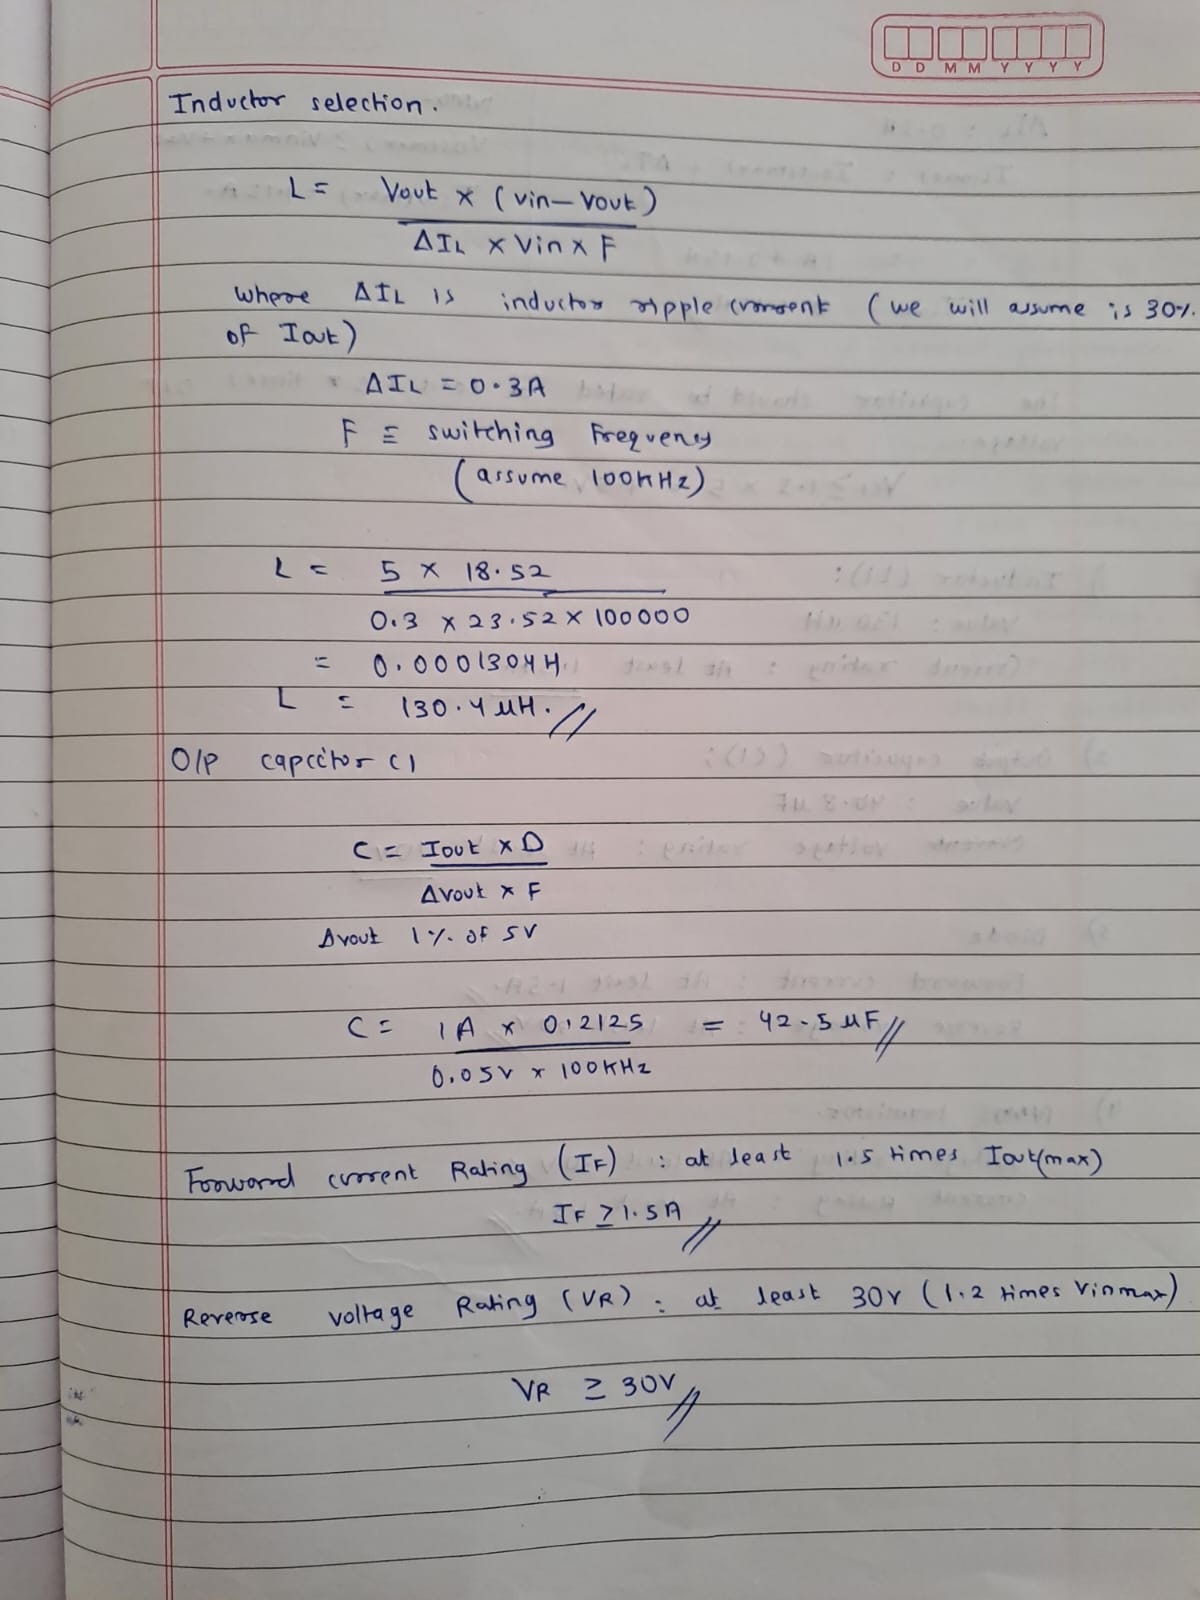 D D M M Y Y Y Y
Inductor selection.
L = Vout x (vin - Vout)
ΔIL x Vin x F
where ΔIL is inductor ripple current (we will assume is 30%
of Iout)
ΔIL = 0.3A
F = switching Frequency
(assume 100KHz)
L = 5 x 18.52
0.3 x 23.52 x 100000
= 0.0001304H
L = 130.4 μH.//
O/P capccitor C1
C = Iout x D
ΔVout x F
Δvout 1% of 5V
C = 1A x 0.2125 = 42.5 μF//
0.05V x 100KHz
Forward current Rating (IF) : at least 1.5 times Iout(max)
IF ≥ 1.5A//
Reverse voltage Rating (VR) : at least 30V (1.2 times Vinmax)
VR ≥ 30V//